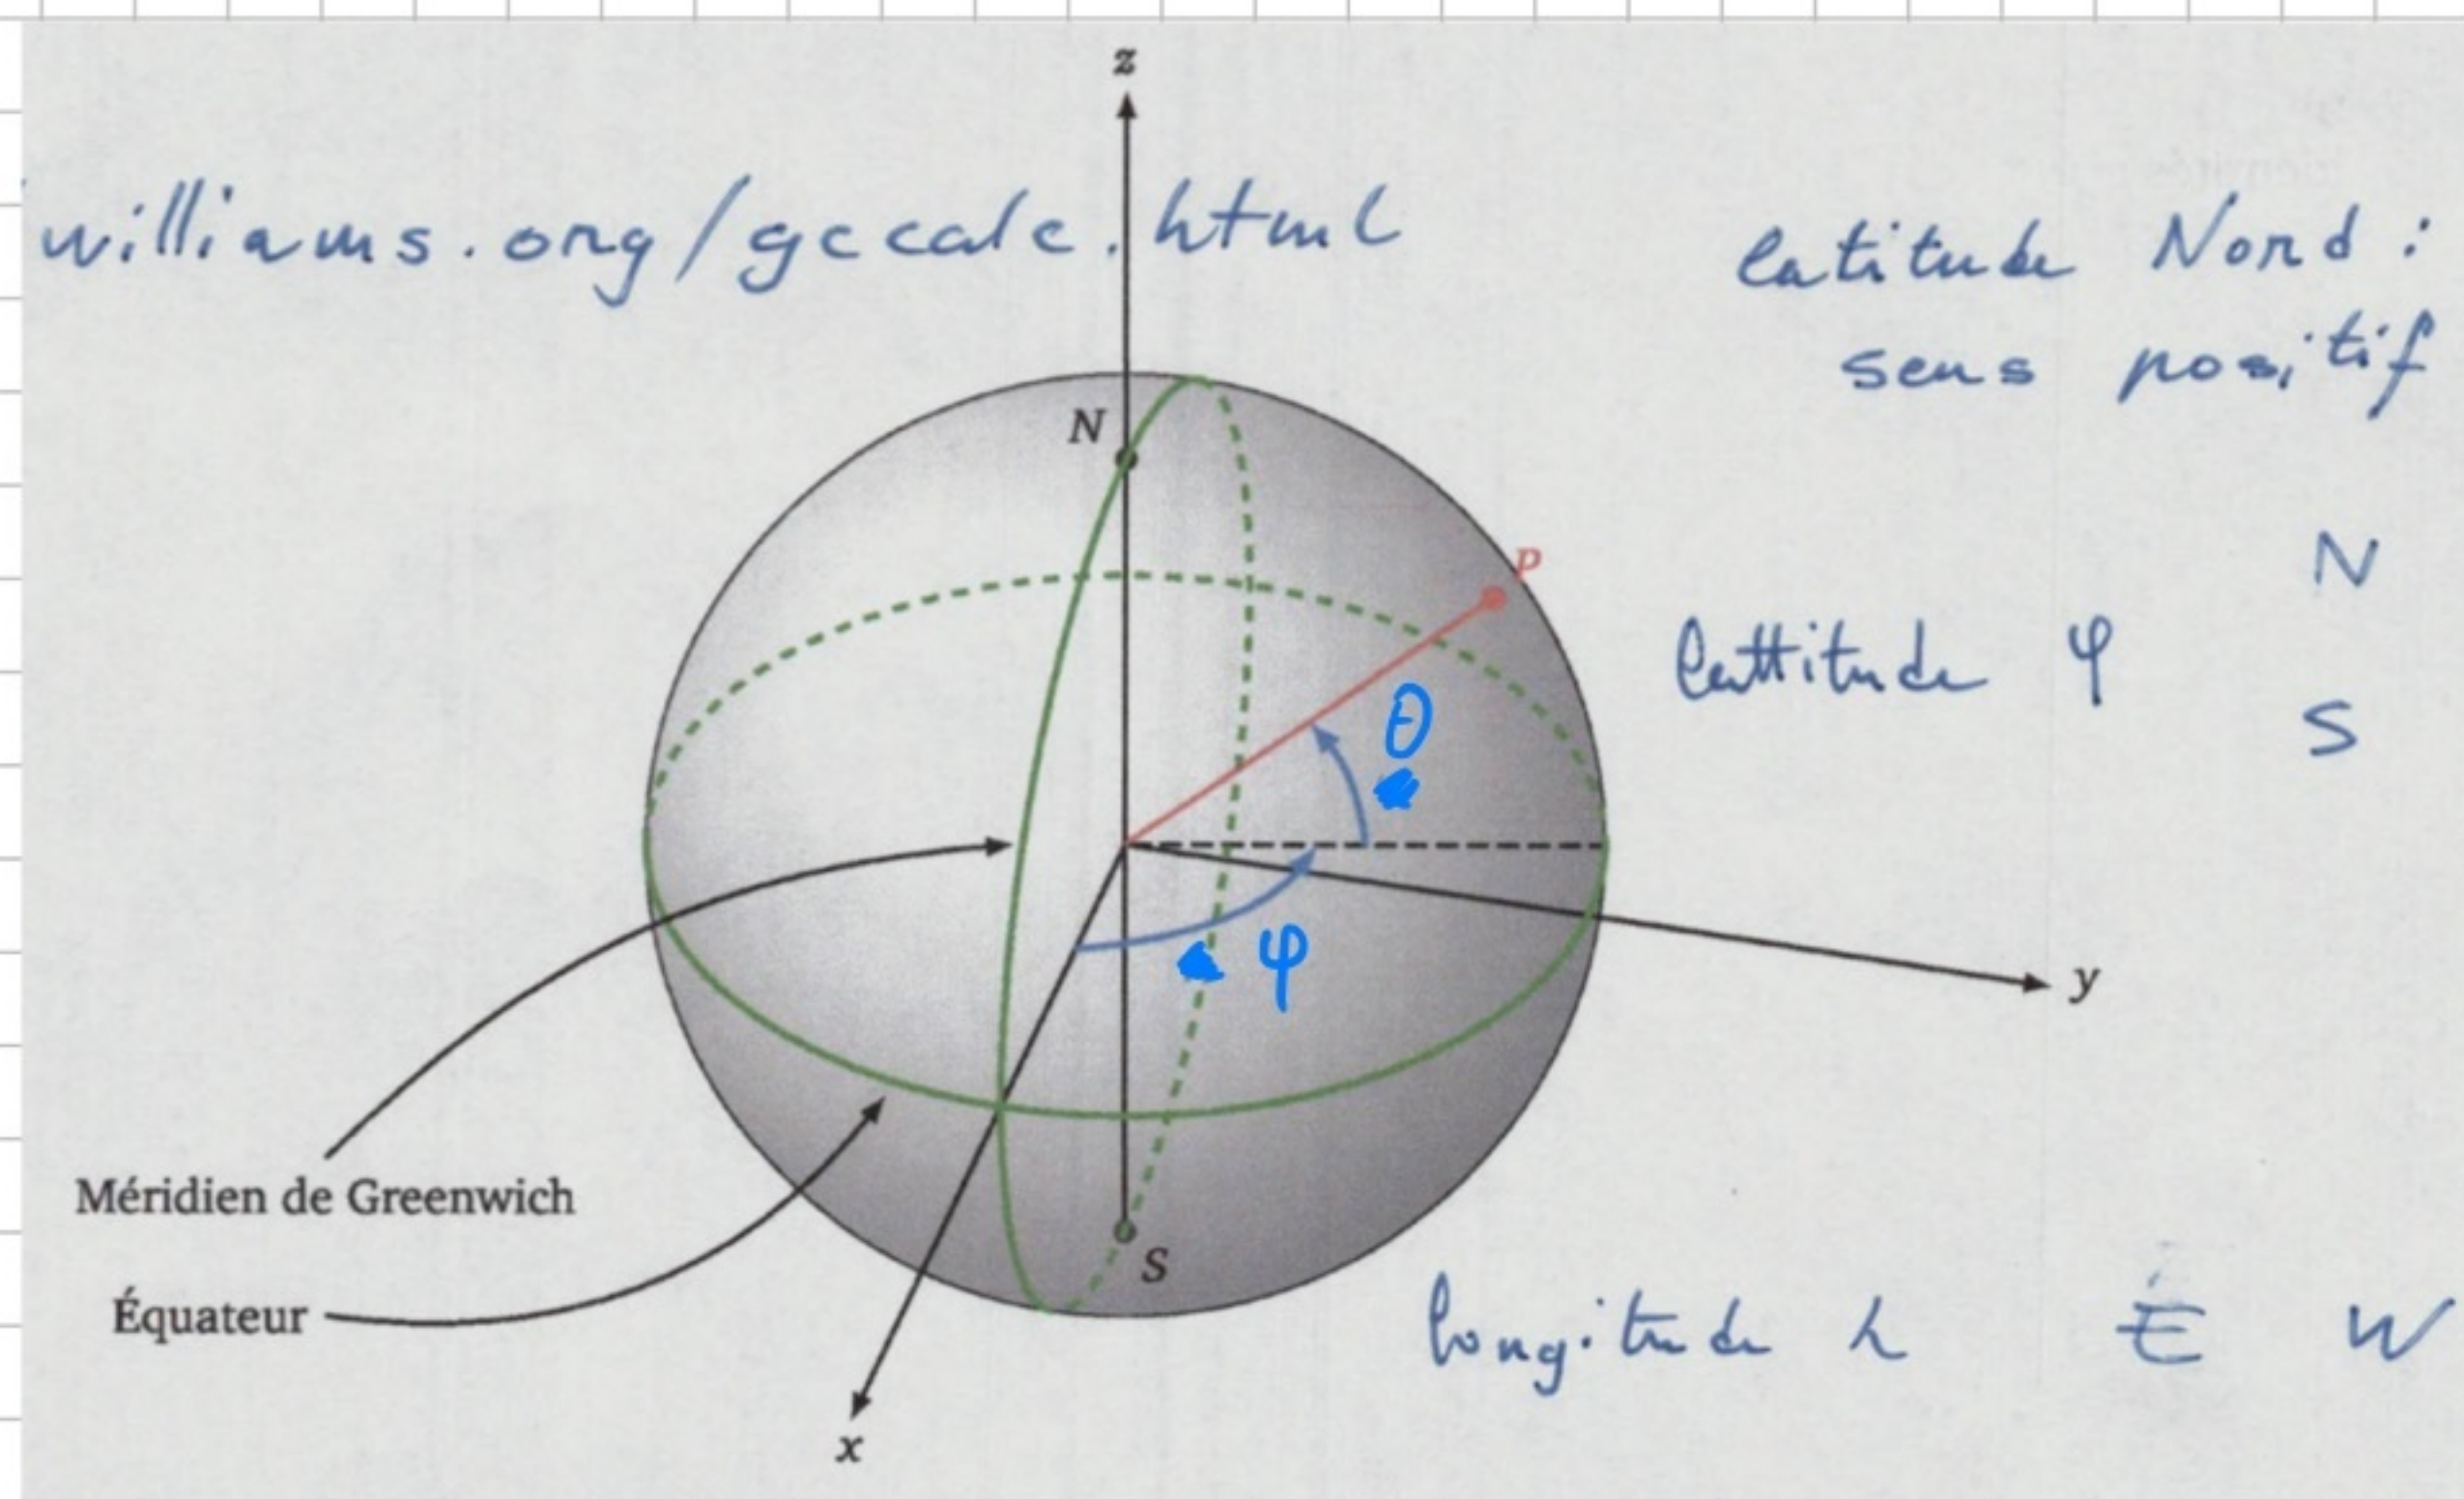 z
williams.org/gccalc.html
latitude Nord :
sens positif
N
P
N
θ
lattitude φ
S
φ
y
Méridien de Greenwich
S
Équateur
longitude λ E W
x